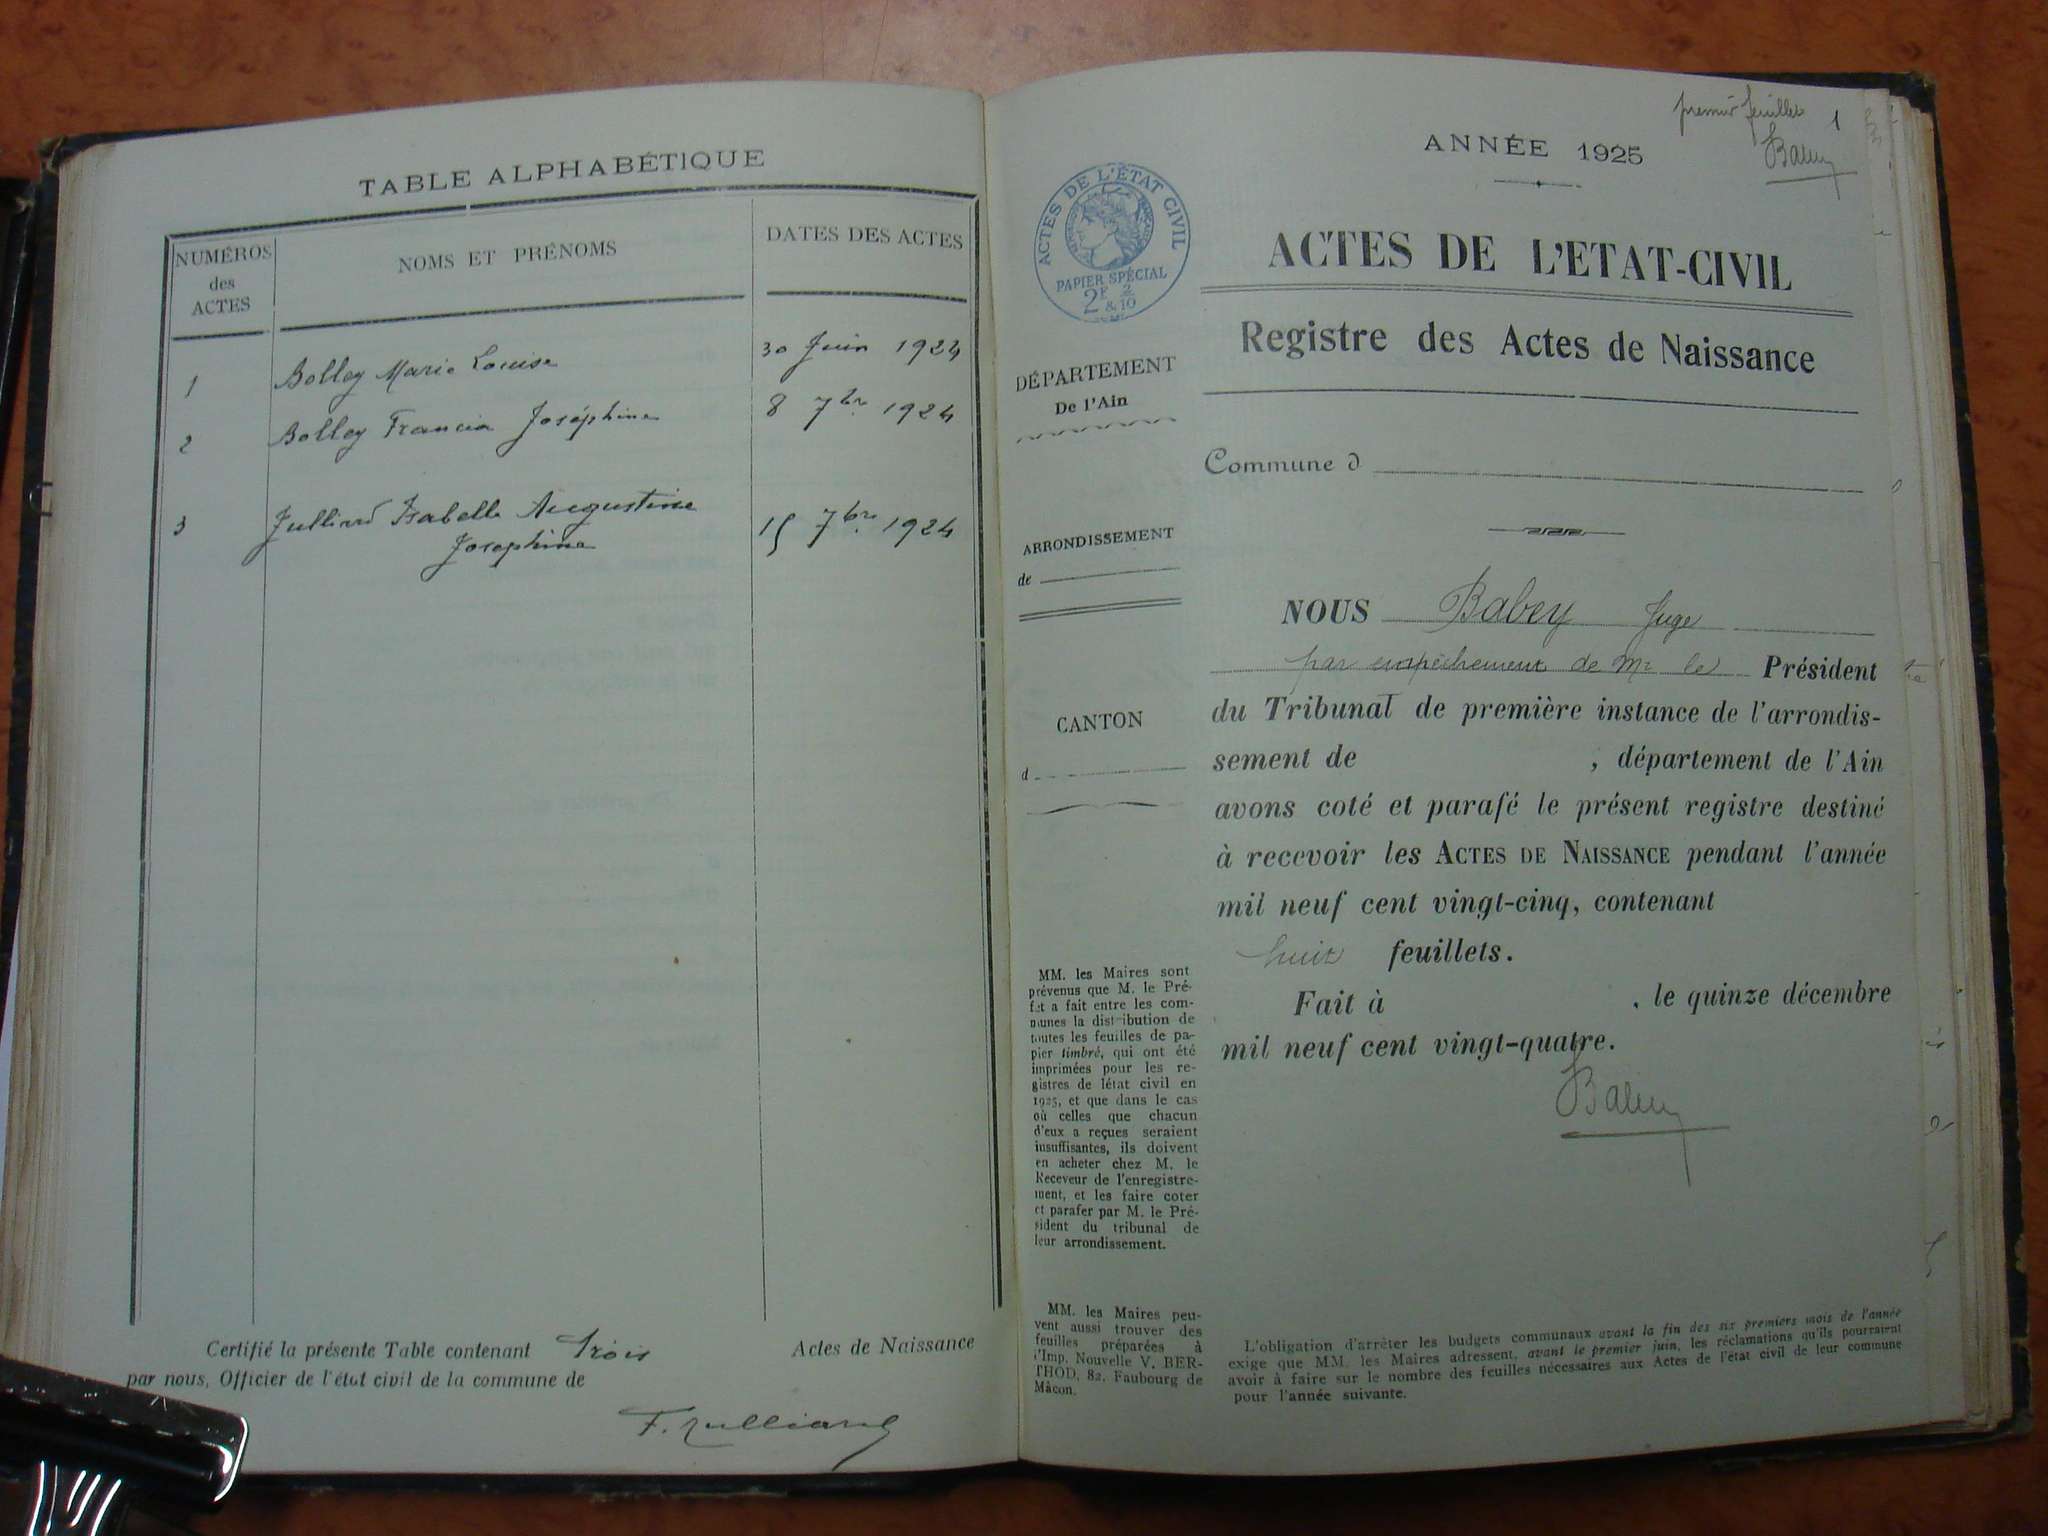 TABLE ALPHABÉTIQUE
NUMÉROS
des
ACTES
NOMS ET PRÉNOMS
DATES DES ACTES
1 Bolley Marie Louise 30 Juin 1924
2 Bolley Francia Joséphine 8 7bre 1924
3 Julliard Isabelle Augustine 15 7bre 1924
Josephine
Certifié la présente Table contenant trois Actes de Naissance
par nous, Officier de l'état civil de la commune de
F. Julliard
premier feuillet 1
Babey
ANNÉE 1925
ACTES DE L'ÉTAT CIVIL
PAPIER SPÉCIAL
2F 2
&10
ACTES DE L'ETAT-CIVIL
Registre des Actes de Naissance
DÉPARTEMENT
De l'Ain
Commune d
ARRONDISSEMENT
de
CANTON
d
NOUS Babey Juge
par empêchement de Mr le Président
du Tribunal de première instance de l'arrondis-
sement de , département de l'Ain
avons coté et parafé le présent registre destiné
à recevoir les ACTES DE NAISSANCE pendant l'année
mil neuf cent vingt-cinq, contenant
huit feuillets.
Fait à , le quinze décembre
mil neuf cent vingt-quatre.
Babey
MM. les Maires sont
prévenus que M. le Pré-
fet a fait entre les com-
munes la distribution de
toutes les feuilles de pa-
pier timbré, qui ont été
imprimées pour les re-
gistres de létat civil en
1925, et que dans le cas
où celles que chacun
d'eux a reçues seraient
insuffisantes, ils doivent
en acheter chez M. le
Receveur de l'enregistre-
ment, et les faire coter
et parafer par M. le Pré-
sident du tribunal de
leur arrondissement.
MM. les Maires peu-
vent aussi trouver des
feuilles préparées à
l'Imp. Nouvelle V. BER-
THOD, 82, Faubourg de
Mâcon.
L'obligation d'arrêter les budgets communaux avant la fin des six premiers mois de l'année
exige que MM. les Maires adressent, avant le premier juin, les réclamations qu'ils pourraient
avoir à faire sur le nombre des feuilles nécessaires aux Actes de l'état civil de leur commune
pour l'année suivante.